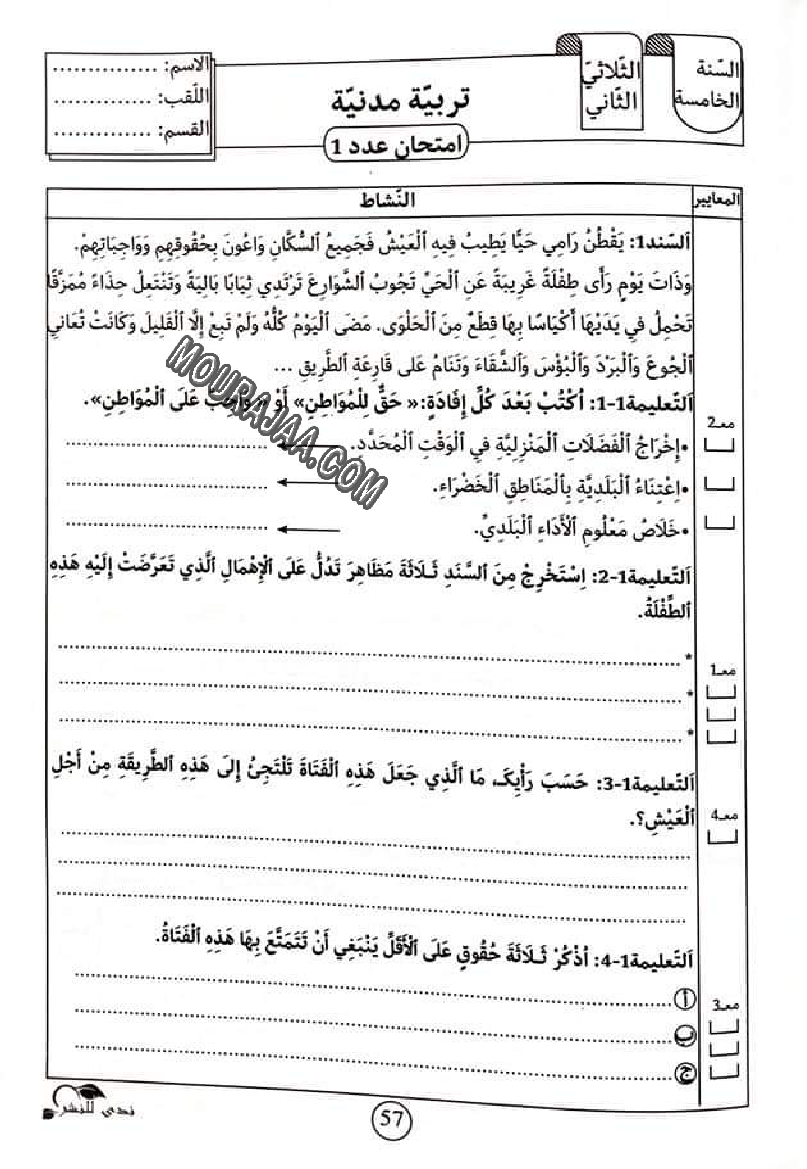 السّنة
الخامسة
الثّلاثيّ
الثّاني
تربيّة مدنيّة
امتحان عدد 1
الاسم: ................
اللّقب: ..............
القسم: ..............
المعايير
النّشاط
اَلسّند1: يَقْطُنُ رَامِي حَيًّا يَطِيبُ فِيهِ اَلْعَيْشُ فَجَمِيعُ اَلسُّكَّانِ وَاعُونَ بِحُقُوقِهِمِ وَوَاجِبَاتِهِمْ.
وَذَاتَ يَوْمٍ رَأَى طِفْلَةً غَرِيبَةً عَنِ اَلْحَيِّ تَجُوبُ اَلشَّوَارِعَ تَرْتَدِي ثِيَابًا بَالِيَةً وَتَنْتَعِلُ حِذَاءً مُمَزَّقًا
تَحْمِلُ فِي يَدَيْهَا أَكْيَاسًا بِهَا قِطَعٌ مِنَ اَلْحَلْوَى. مَضَى اَلْيَوْمُ كُلُّهُ وَلَمْ تَبِعْ إِلَّا اَلْقَلِيلَ وَكَانَتْ تُعَانِي
اَلْجُوعَ وَاَلْبَرْدَ وَاَلْبُؤْسَ وَاَلشَّقَاءَ وَتَنَامُ عَلَى قَارِعَةِ اَلطَّرِيقِ ...
اَلتّعليمة1-1: اُكْتُبْ بَعْدَ كُلِّ إِفَادَةٍ:« حَقٌّ لِلْمُوَاطِنِ» أَوْ «وَاجِبٌ عَلَى اَلْمُوَاطِنِ».
معـ2
•إِخْرَاجُ اَلْفَضَلَاتِ اَلْمَنْزِلِيَّةِ فِي اَلْوَقْتِ اَلْمُحَدَّدِ. ................................
•اِعْتِنَاءُ اَلْبَلَدِيَّةِ بِاَلْمَنَاطِقِ اَلْخَضْرَاءِ. ................................
•خَلَاصُ مَعْلُومِ اَلْأَدَاءِ اَلْبَلَدِيِّ. ................................
اَلتّعليمة1-2: اِسْتَخْرِجْ مِنَ اَلسَّنَدِ ثَلَاثَةَ مَظَاهِرَ تَدُلُّ عَلَى اَلْإِهْمَالِ اَلَّذِي تَعَرَّضَتْ إِلَيْهِ هَذِهِ
اَلطِّفْلَةُ.
معـ1
* ................................................................
* ................................................................
* ................................................................
اَلتّعليمة1-3: حَسَبَ رَأْيِكَ، مَا اَلَّذِي جَعَلَ هَذِهِ اَلْفَتَاةَ تَلْتَجِئُ إِلَى هَذِهِ اَلطَّرِيقَةِ مِنْ أَجْلِ
اَلْعَيْشِ؟.
معـ4
................................................................
................................................................
................................................................
اَلتّعليمة1-4: اُذْكُرْ ثَلَاثَةَ حُقُوقٍ عَلَى اَلْأَقَلِّ يَنْبَغِي أَنْ تَتَمَتَّعَ بِهَا هَذِهِ اَلْفَتَاةُ.
معـ3
أ ................................................................
ب ................................................................
ج ................................................................
57
ندى للنشر
MOURAJAA.COM